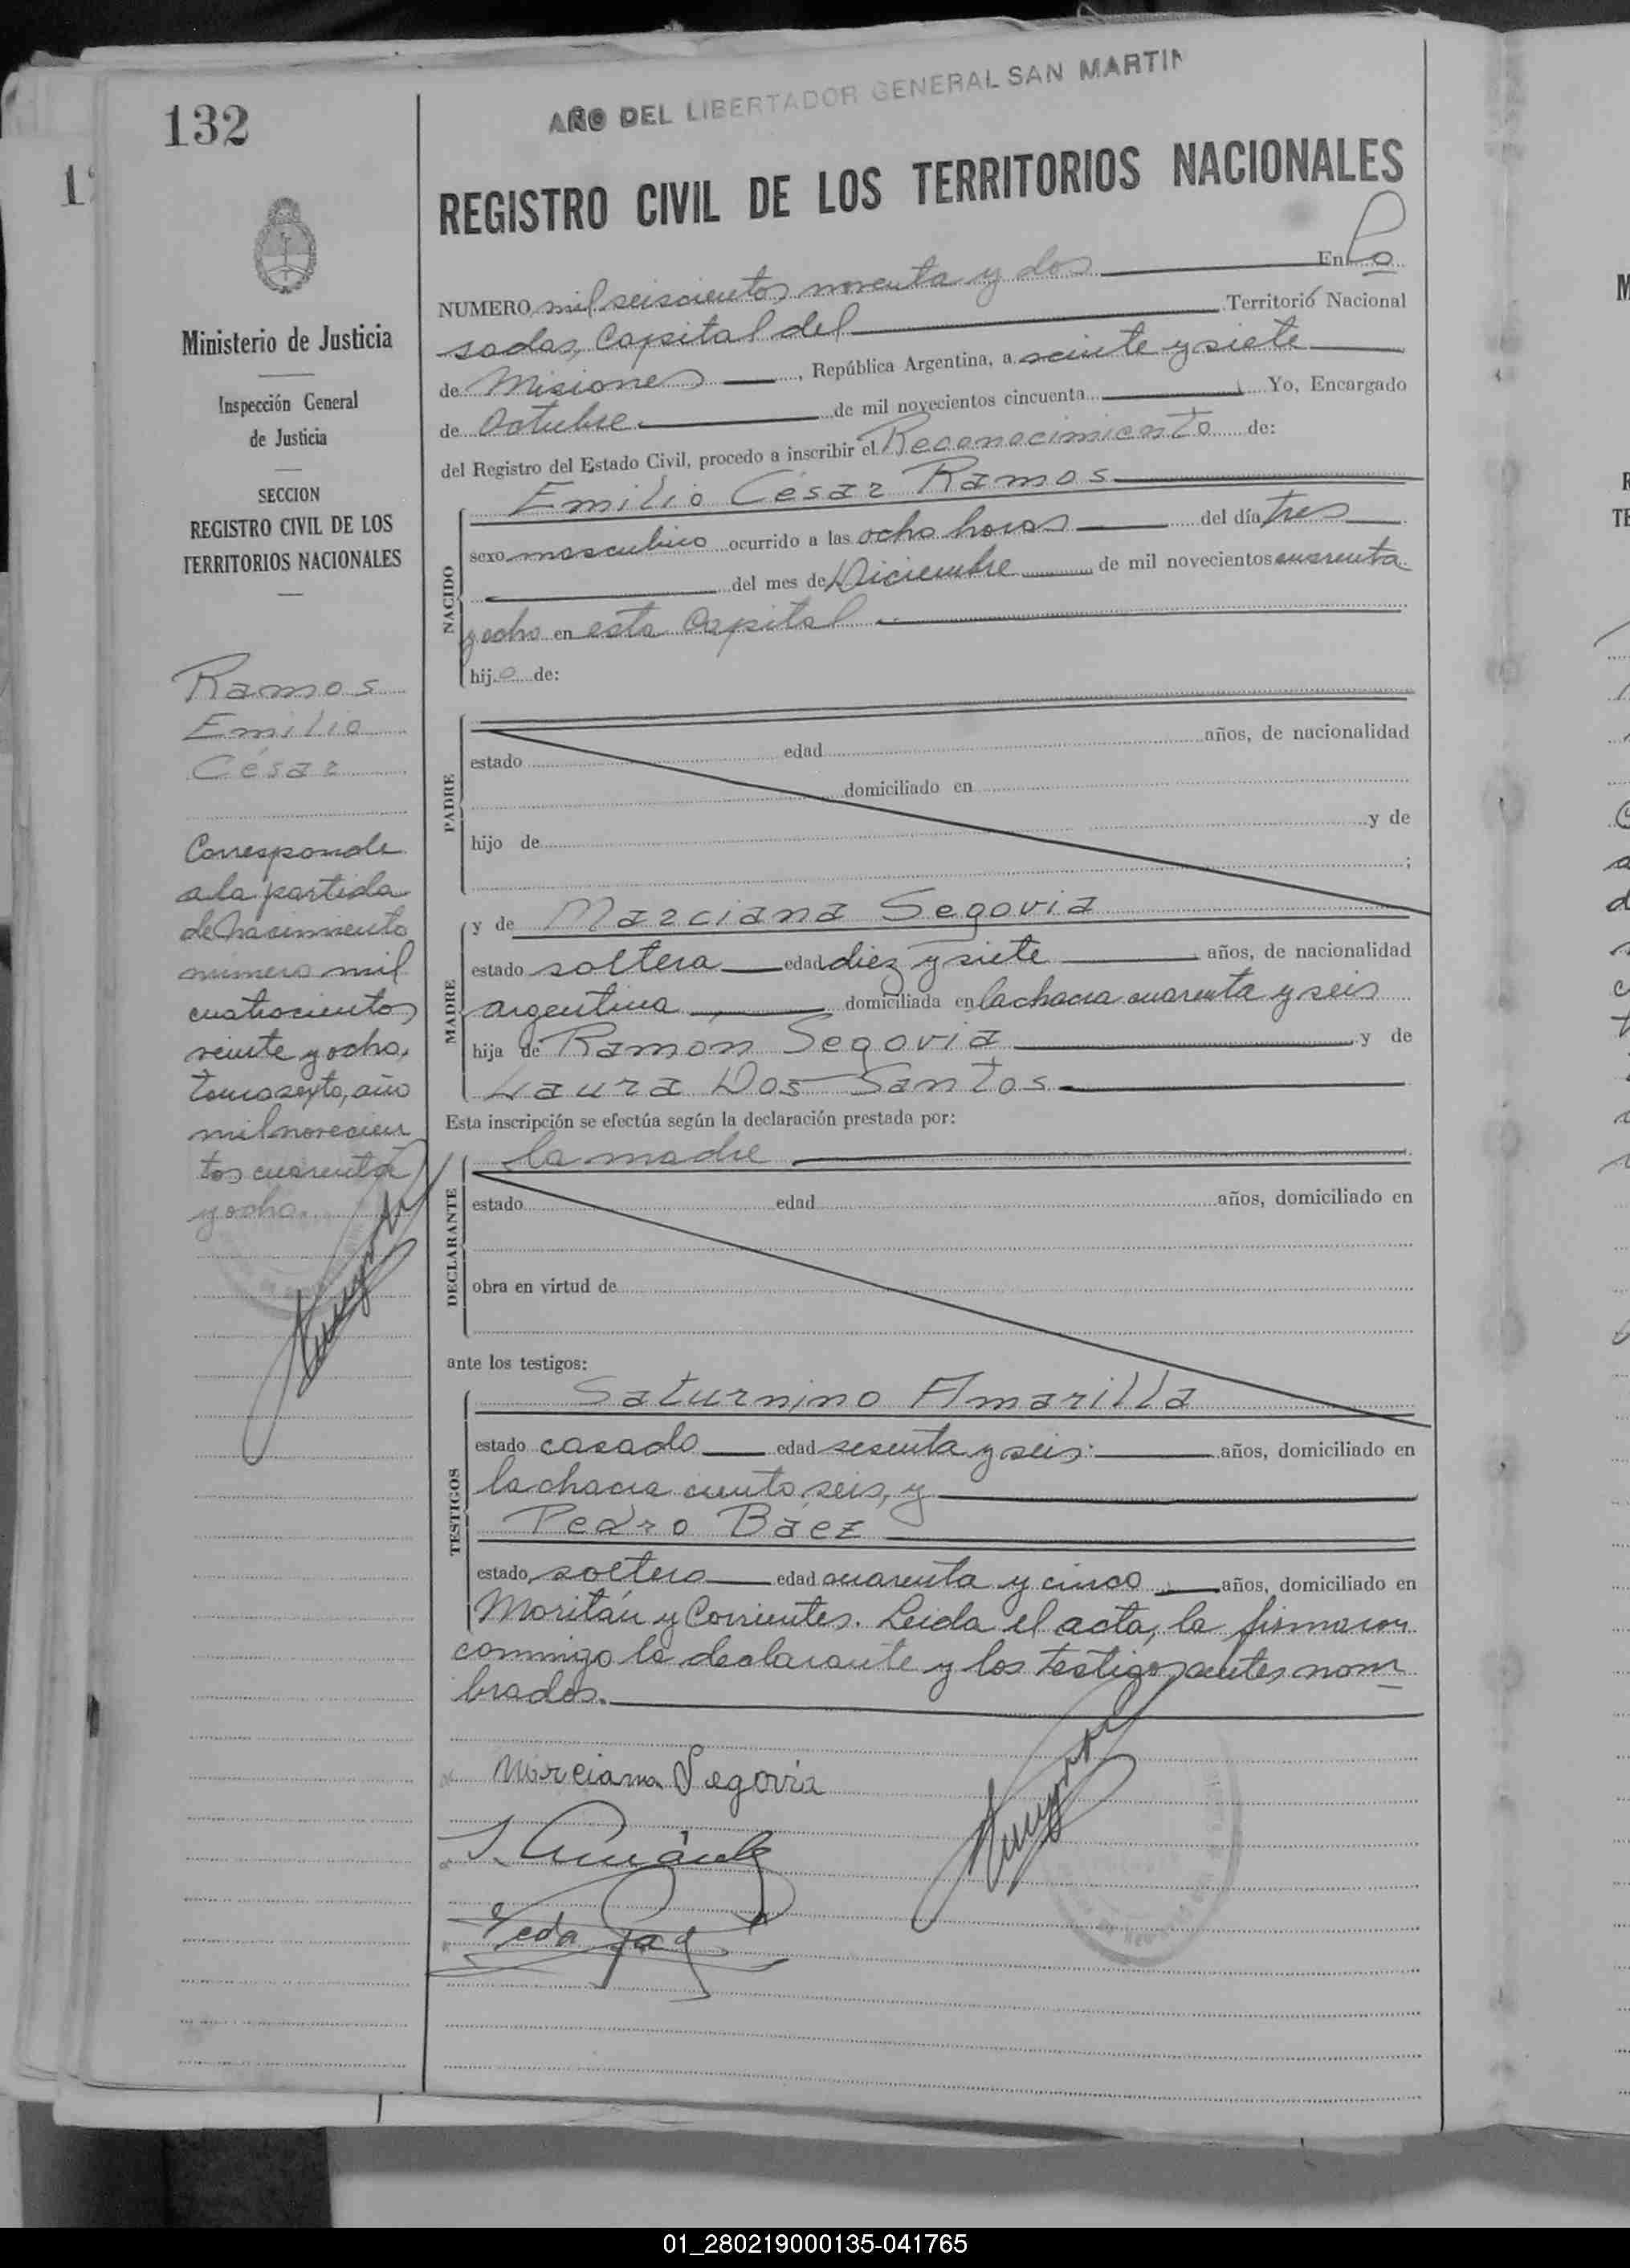 AÑO DEL LIBERTADOR GENERAL SAN MARTIN
132
REGISTRO CIVIL DE LOS TERRITORIOS NACIONALES
Ministerio de Justicia
Inspección General
de Justicia
SECCION
REGISTRO CIVIL DE LOS
TERRITORIOS NACIONALES
Ramos
Emilio
César
Corresponde
a la partida
de nacimiento
número mil
cuatrocientos
veinte y ocho,
tomo sexto, año
mil novecien
tos cuarenta
y ocho.
NUMERO mil seiscientos noventa y dos En Po
sadas, Capital del Territorio Nacional
de Misiones, República Argentina, a veinte y siete
de Octubre de mil novecientos cincuenta Yo, Encargado
del Registro del Estado Civil, procedo a inscribir el Reconocimiento de:
NACIDO
Emilio César Ramos
sexo masculino ocurrido a las ocho horas del día tres
del mes de Diciembre de mil novecientos cuarenta
y ocho en esta Capital
hijo de:
PADRE
estado edad años, de nacionalidad
domiciliado en
hijo de y de
;
MADRE
y de Marciana Segovia
estado soltera edad diez y siete años, de nacionalidad
argentina domiciliada en la chacra cuarenta y seis
hija de Ramón Segovia y de
Laura Dos Santos
Esta inscripción se efectúa según la declaración prestada por:
DECLARANTE
la madre
estado edad años, domiciliado en
obra en virtud de
ante los testigos:
TESTIGOS
Saturnino Amarilla
estado casado edad sesenta y seis años, domiciliado en
la chacra ciento seis, y
Pedro Báez
estado soltero edad cuarenta y cinco años, domiciliado en
Moritán y Corrientes. Leida el acta, la firmaron
conmigo la declarante y los testigos antes nom
brados.
Marciana Segovia
01_280219000135-041765